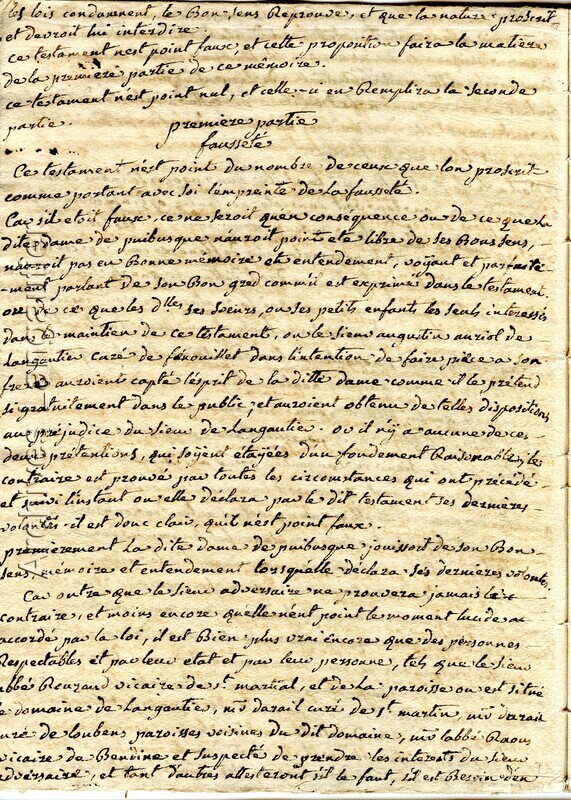 les lois condamnent, le Bon sens Reprouve, et que la nature proscrit
et devroit lui interdire.
ce testament n'est point faux, et cette proposition faira la matiere
de la premiere partie de ce mémoire.
ce testament n'est point nul, et celle-ci en Remplira la seconde
partie.
premiere partie
fausseté
Ce testament n'est point du nombre de ceux que lon proscrit
comme portant avec soi l'empreinte de la fausseté.
Car sil etoit faux, ce ne seroit quen conséquence ou de ce que la
dite dame de puibusque nauroit point eté libre de ses Bons sens,
nauroit pas eu Bonne mémoire et entendement, voyant et parfaite-
-ment parlant de son Bon gred comme il est exprimé dans le testament.
ou de ce que les dlles ses soeurs, ou ses petits enfants les seuls interessés
dans le maintien de ce testament, ou le sieur augustin auriol de
Langautie curé de fenouillet dans l'intention de faire pièce a son
frere auroient capté lesprit de la ditte dame comme il le prétend
si gratuitement dans le public, et auroient obtenu de telles dispositions
au préjudice du sieur de Langautie. or il n'y a aucune de ces
deux prétentions, qui soyent étayées d'un fondement Raisonable, le
contraire est prouvé par toutes les circonstances qui ont précédé
et suivi l'instant ou elle déclara par le dit testament ses dernieres
volontés. il est donc clair, qu'il n'est point faux.
premierement La dite dame de puibusque jouissoit de son Bon
sens, mémoire et entendement lorsquelle déclara ses dernieres volontés.
Car outre que le sieur adversaire ne prouvera jamais le
contraire, et moins encore quelle n'eut point le moment lucide
accordé par la loi, il est Bien plus vrai encore que des personnes
Respectables et par leur etat et par leur personne, tels que le sieur
abbé Rouzaud vicaire de st martial, et de la paroisse ou est situé
le domaine de Langautie, mr darail curé de st martin, mr darail
curé de loubens paroisses voisines du dit domaine, mr labbé Raous
vicaire de et suspecté de prendre les interets du sieur
adversaire, et tant d'autres attesteront s'il le faut, s'il est Besoin d'en